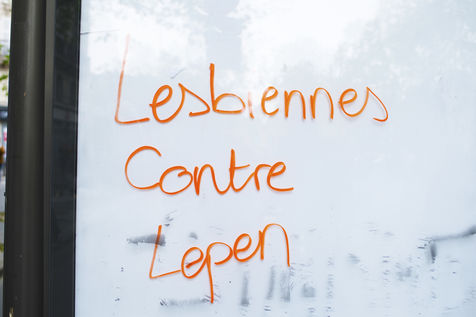 Lesbiennes
Contre
Lepen